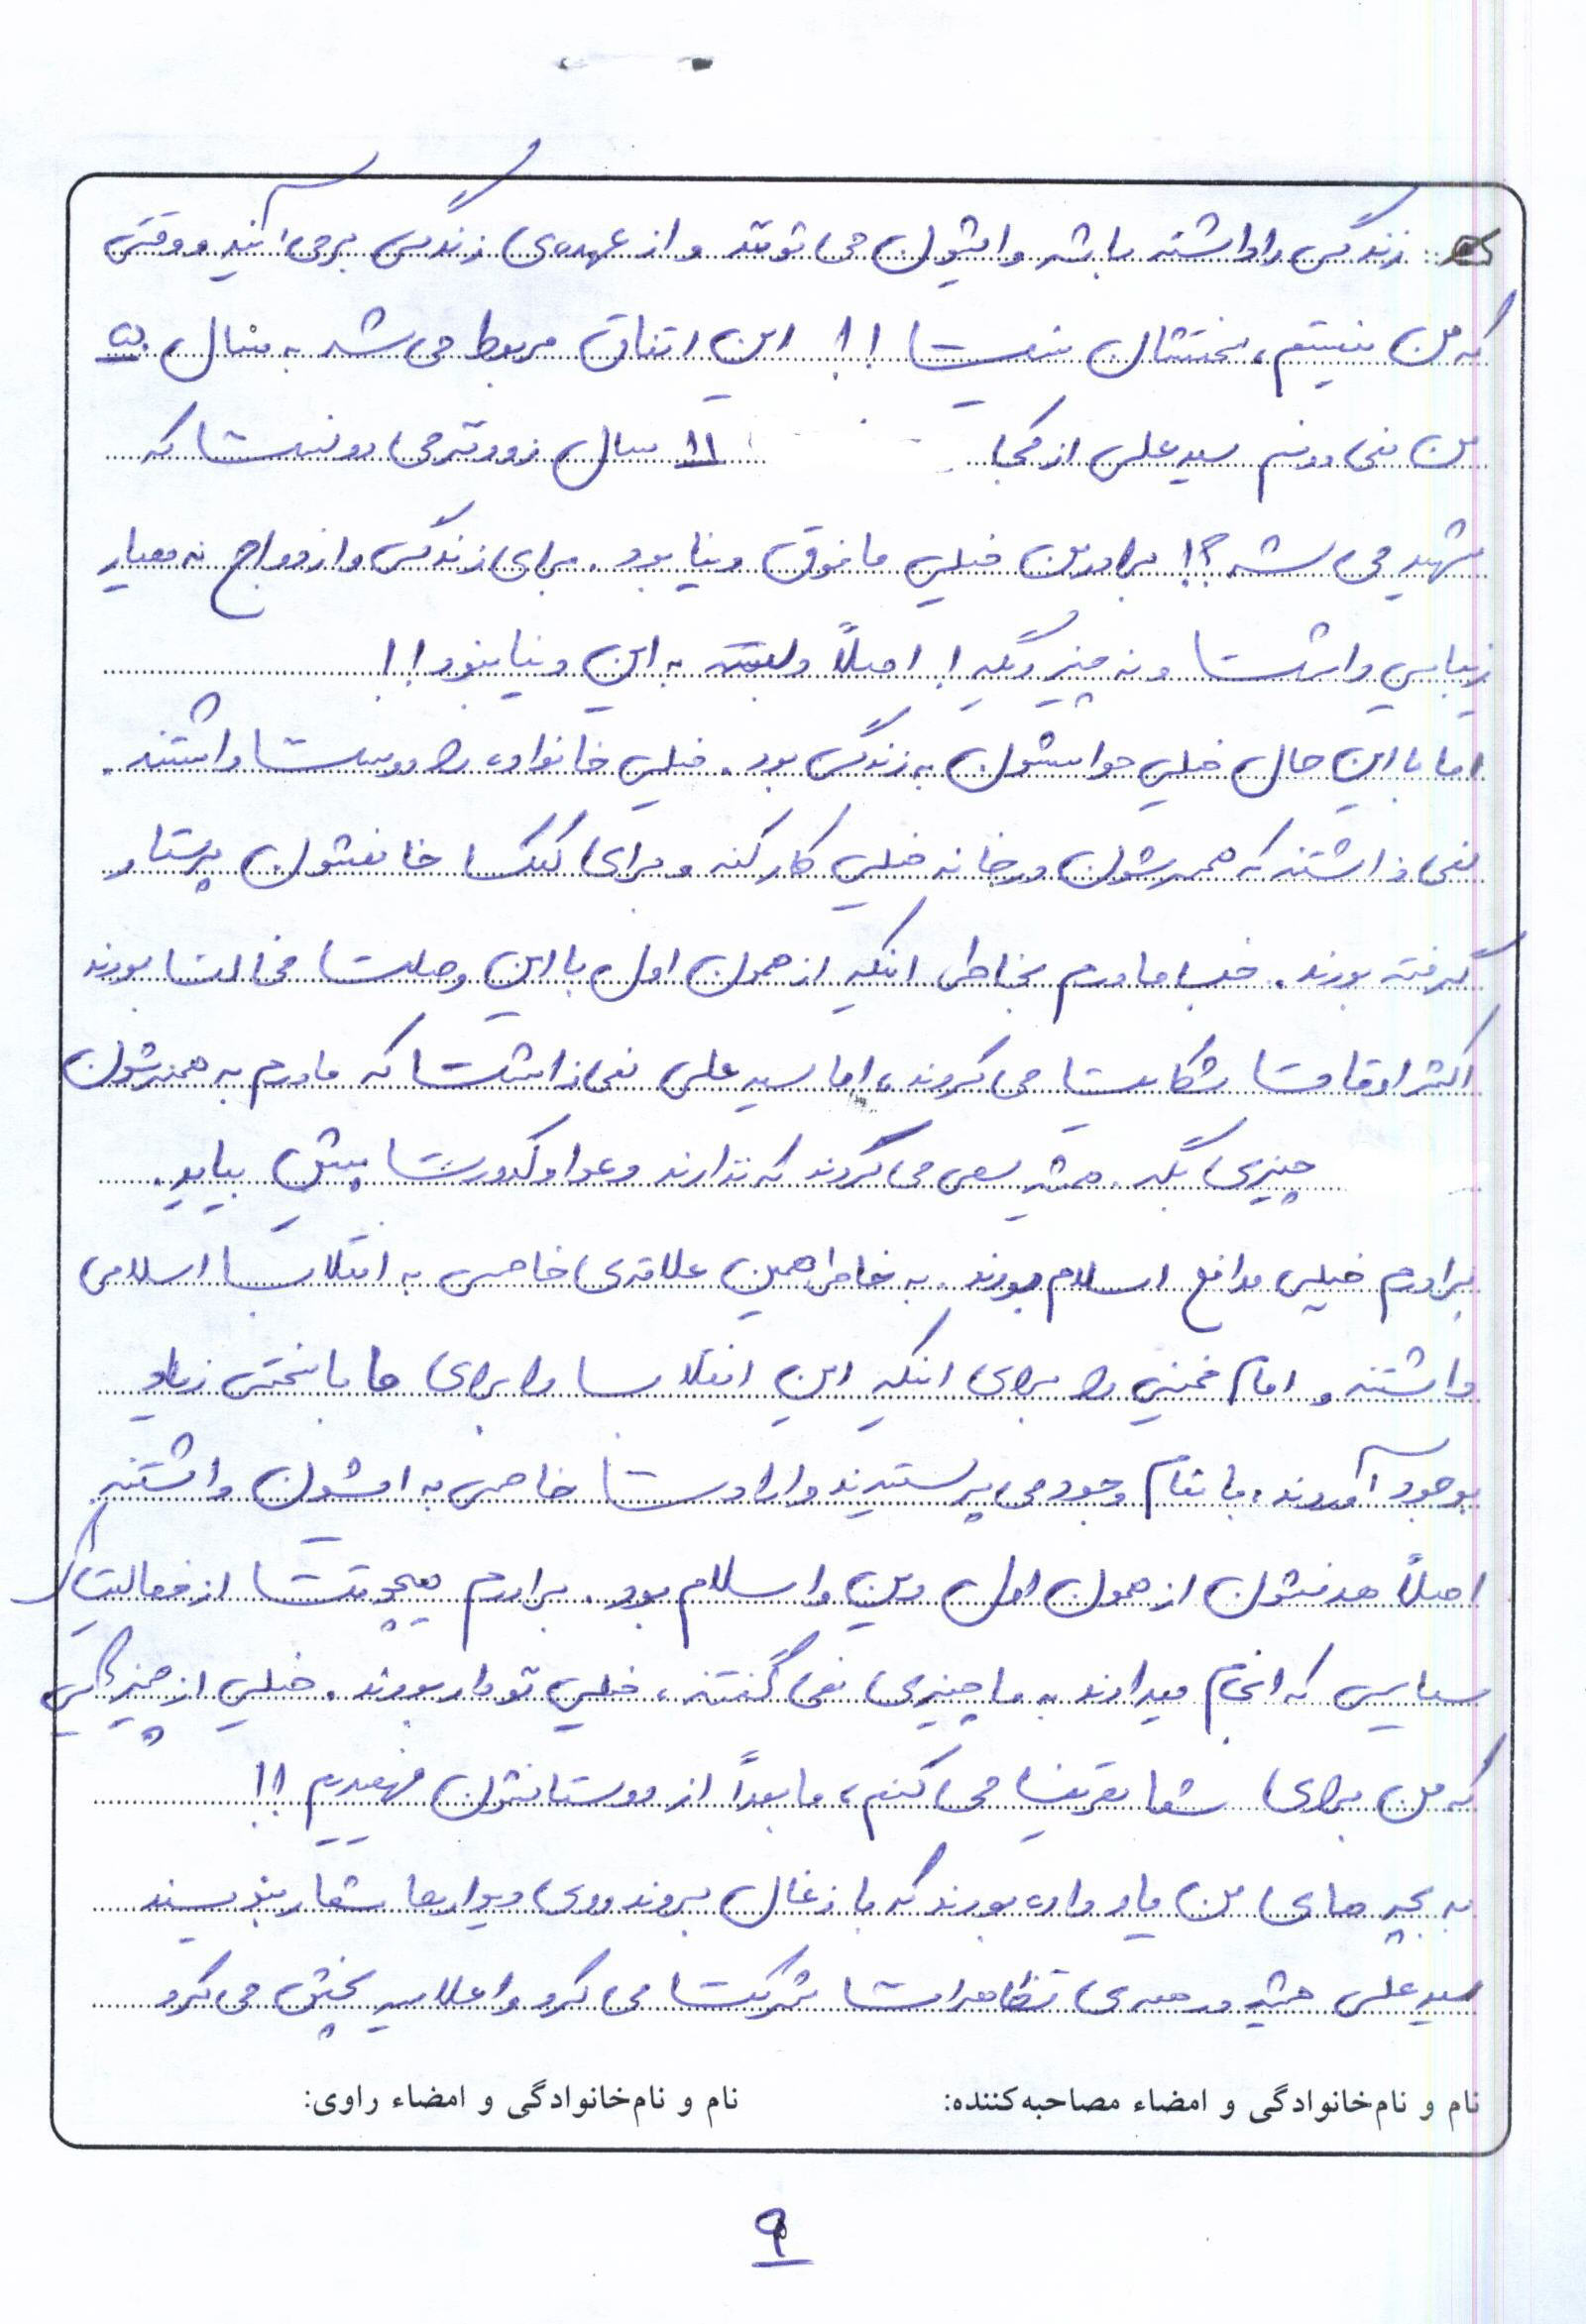 زندگی را داشته باشه و ایشون می‌توند و از عهده‌ی زندگی برمی‌آیند و وقتی
که من نیستم، سختشان نیست!! این اتفاق مربوط می‌شه به سال ۵۰
من نمی‌دونم سید علی از کجا ۱۱ سال زودتر می‌دونست که
شهید می‌شه؟! برادر من خیلی مافوق دنیا بود. برای زندگی و ازدواج نه معیار
زیبایی داشت و نه چیز دیگه! اصلاً وابسته به این دنیا نبود!!
اما با این حال خیلی حواسشون به زندگی بود. خیلی خانواده را دوست داشتند.
نمی‌ذاشتند که همسرشون در خانه خیلی کار کنه و برای کمک خانمشون پرستار
گرفته بودند. خب مادرم بخاطر اینکه از همون اول با این وصلت مخالف بودند
اکثر اوقات شکایت می‌کردند، اما سید علی نمی‌ذاشت که مادرم به همسرشون
چیزی بگه. همیشه سعی می‌کردند که نذارند دعوا و کدورت پیش بیاید.
برادرم خیلی مدافع اسلام بودند. به خاطر همین علاقه‌ی خاصی به انقلاب اسلامی
داشتند و امام خمینی را برای اینکه این انقلاب را برای ما با سختی زیاد
بوجود آوردند. با تمام وجود می‌پرستیدند و ارادت خاصی به ایشون داشتند.
اصلاً هدفشون از همون اول دین و اسلام بود. برادرم هیچوقت از فعالیتهای
سیاسی که انجام میدادند به ما چیزی نمی‌گفتند، خیلی تودار بودند. خیلی از چیزهایی
که من برای شما تعریف می‌کنم، ما بعداً از دوستانشون فهمیدیم!!
به بچه‌های من یاد داده بودند که با زغال بروند روی دیوارها شعار بنویسند
سید علی همیشه در همه‌ی تظاهرات شرکت می‌کرد و اعلامیه پخش می‌کرد
نام و نام‌خانوادگی و امضاء مصاحبه‌کننده: نام و نام‌خانوادگی و امضاء راوی:
۹